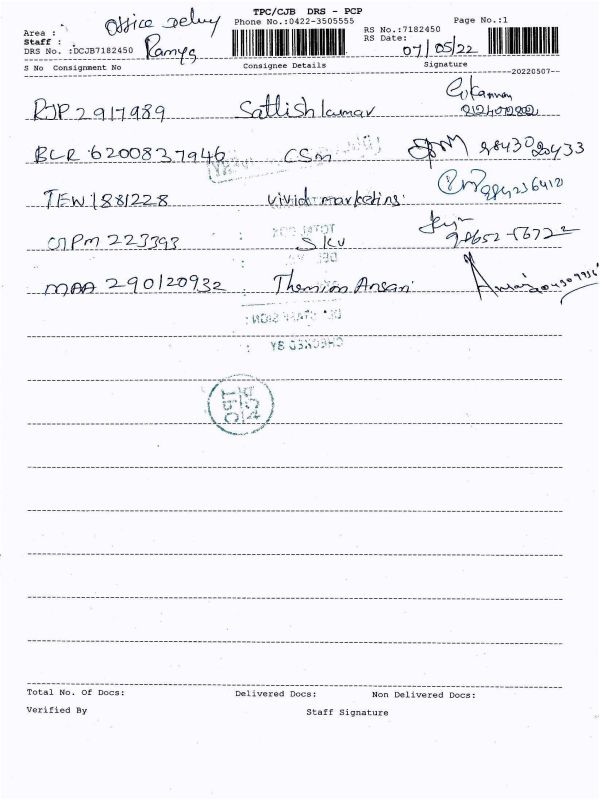 TPC/CJB DRS - PCP
Office Delvy
Phone No.:0422-3505555
Page No.:1
Area :
RS No.:7182450
Staff :
RS Date: 07/05/22
DRS No. :DCJB7182450
Ramya
S No Consignment No Consignee Details Signature
20220507
RJP 2917989 Satlish kumar
BLR 6200837946 CSM 98430 20433
TEW 1881228 vivid marketing.
223393 : SKV 98652-56722
MAA 290120932 : Themim Ansari
TOTAL DOX
DEL. STAFF SIGN :
CHECKED BY :
Total No. Of Docs: Delivered Docs: Non Delivered Docs:
Verified By Staff Signature